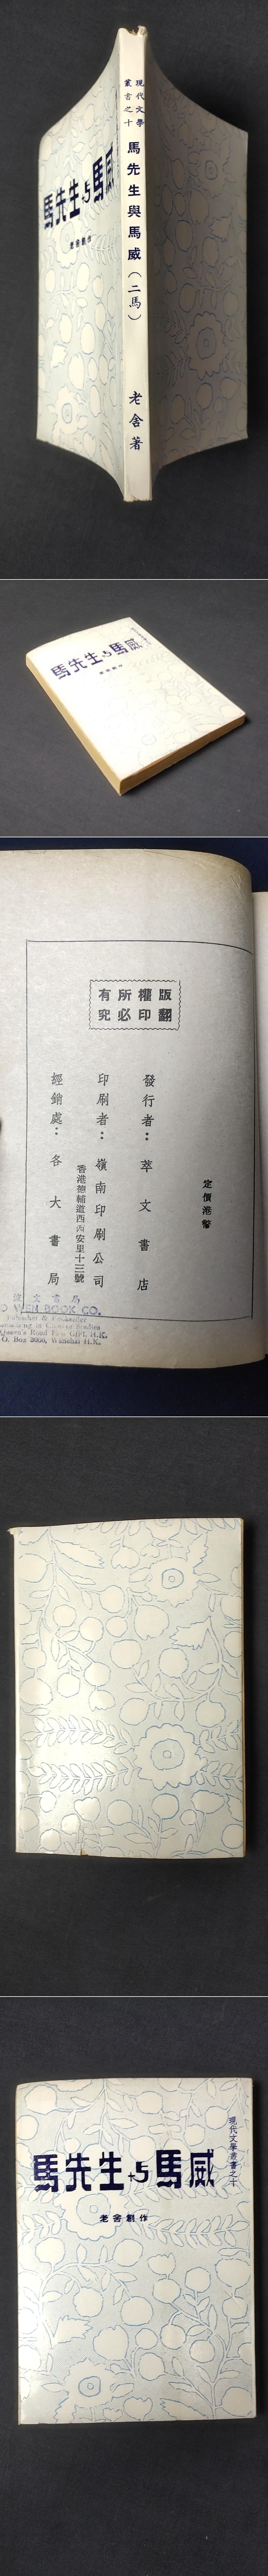 現代文學
叢書之十
馬先生與馬威（二馬）
老舍著
馬先生与馬威
老舍創作
馬先生与馬威
老舍創作
版權所有
翻印必究
定價港幣
發行者：萃文書店
印刷者：嶺南印刷公司
香港德輔道西西安里十三號
經銷處：各大書局
文書局
WEN BOOK CO.
Publisher & Bookseller
Queen's Road
Box 3066, Wanchai H.K.
現代文學叢書之十
馬先生与馬威
老舍創作